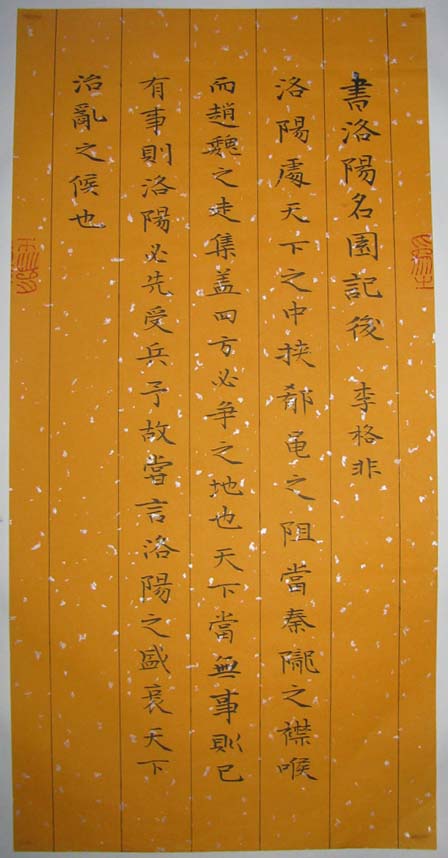 書洛陽名園記後 李格非
洛陽處天下之中挾郩黽之阻當秦隴之襟喉
而趙魏之走集盖四方必争之地也天下當無事則已
有事則洛陽必先受兵予故當言洛陽之盛衰天下
治亂之候也